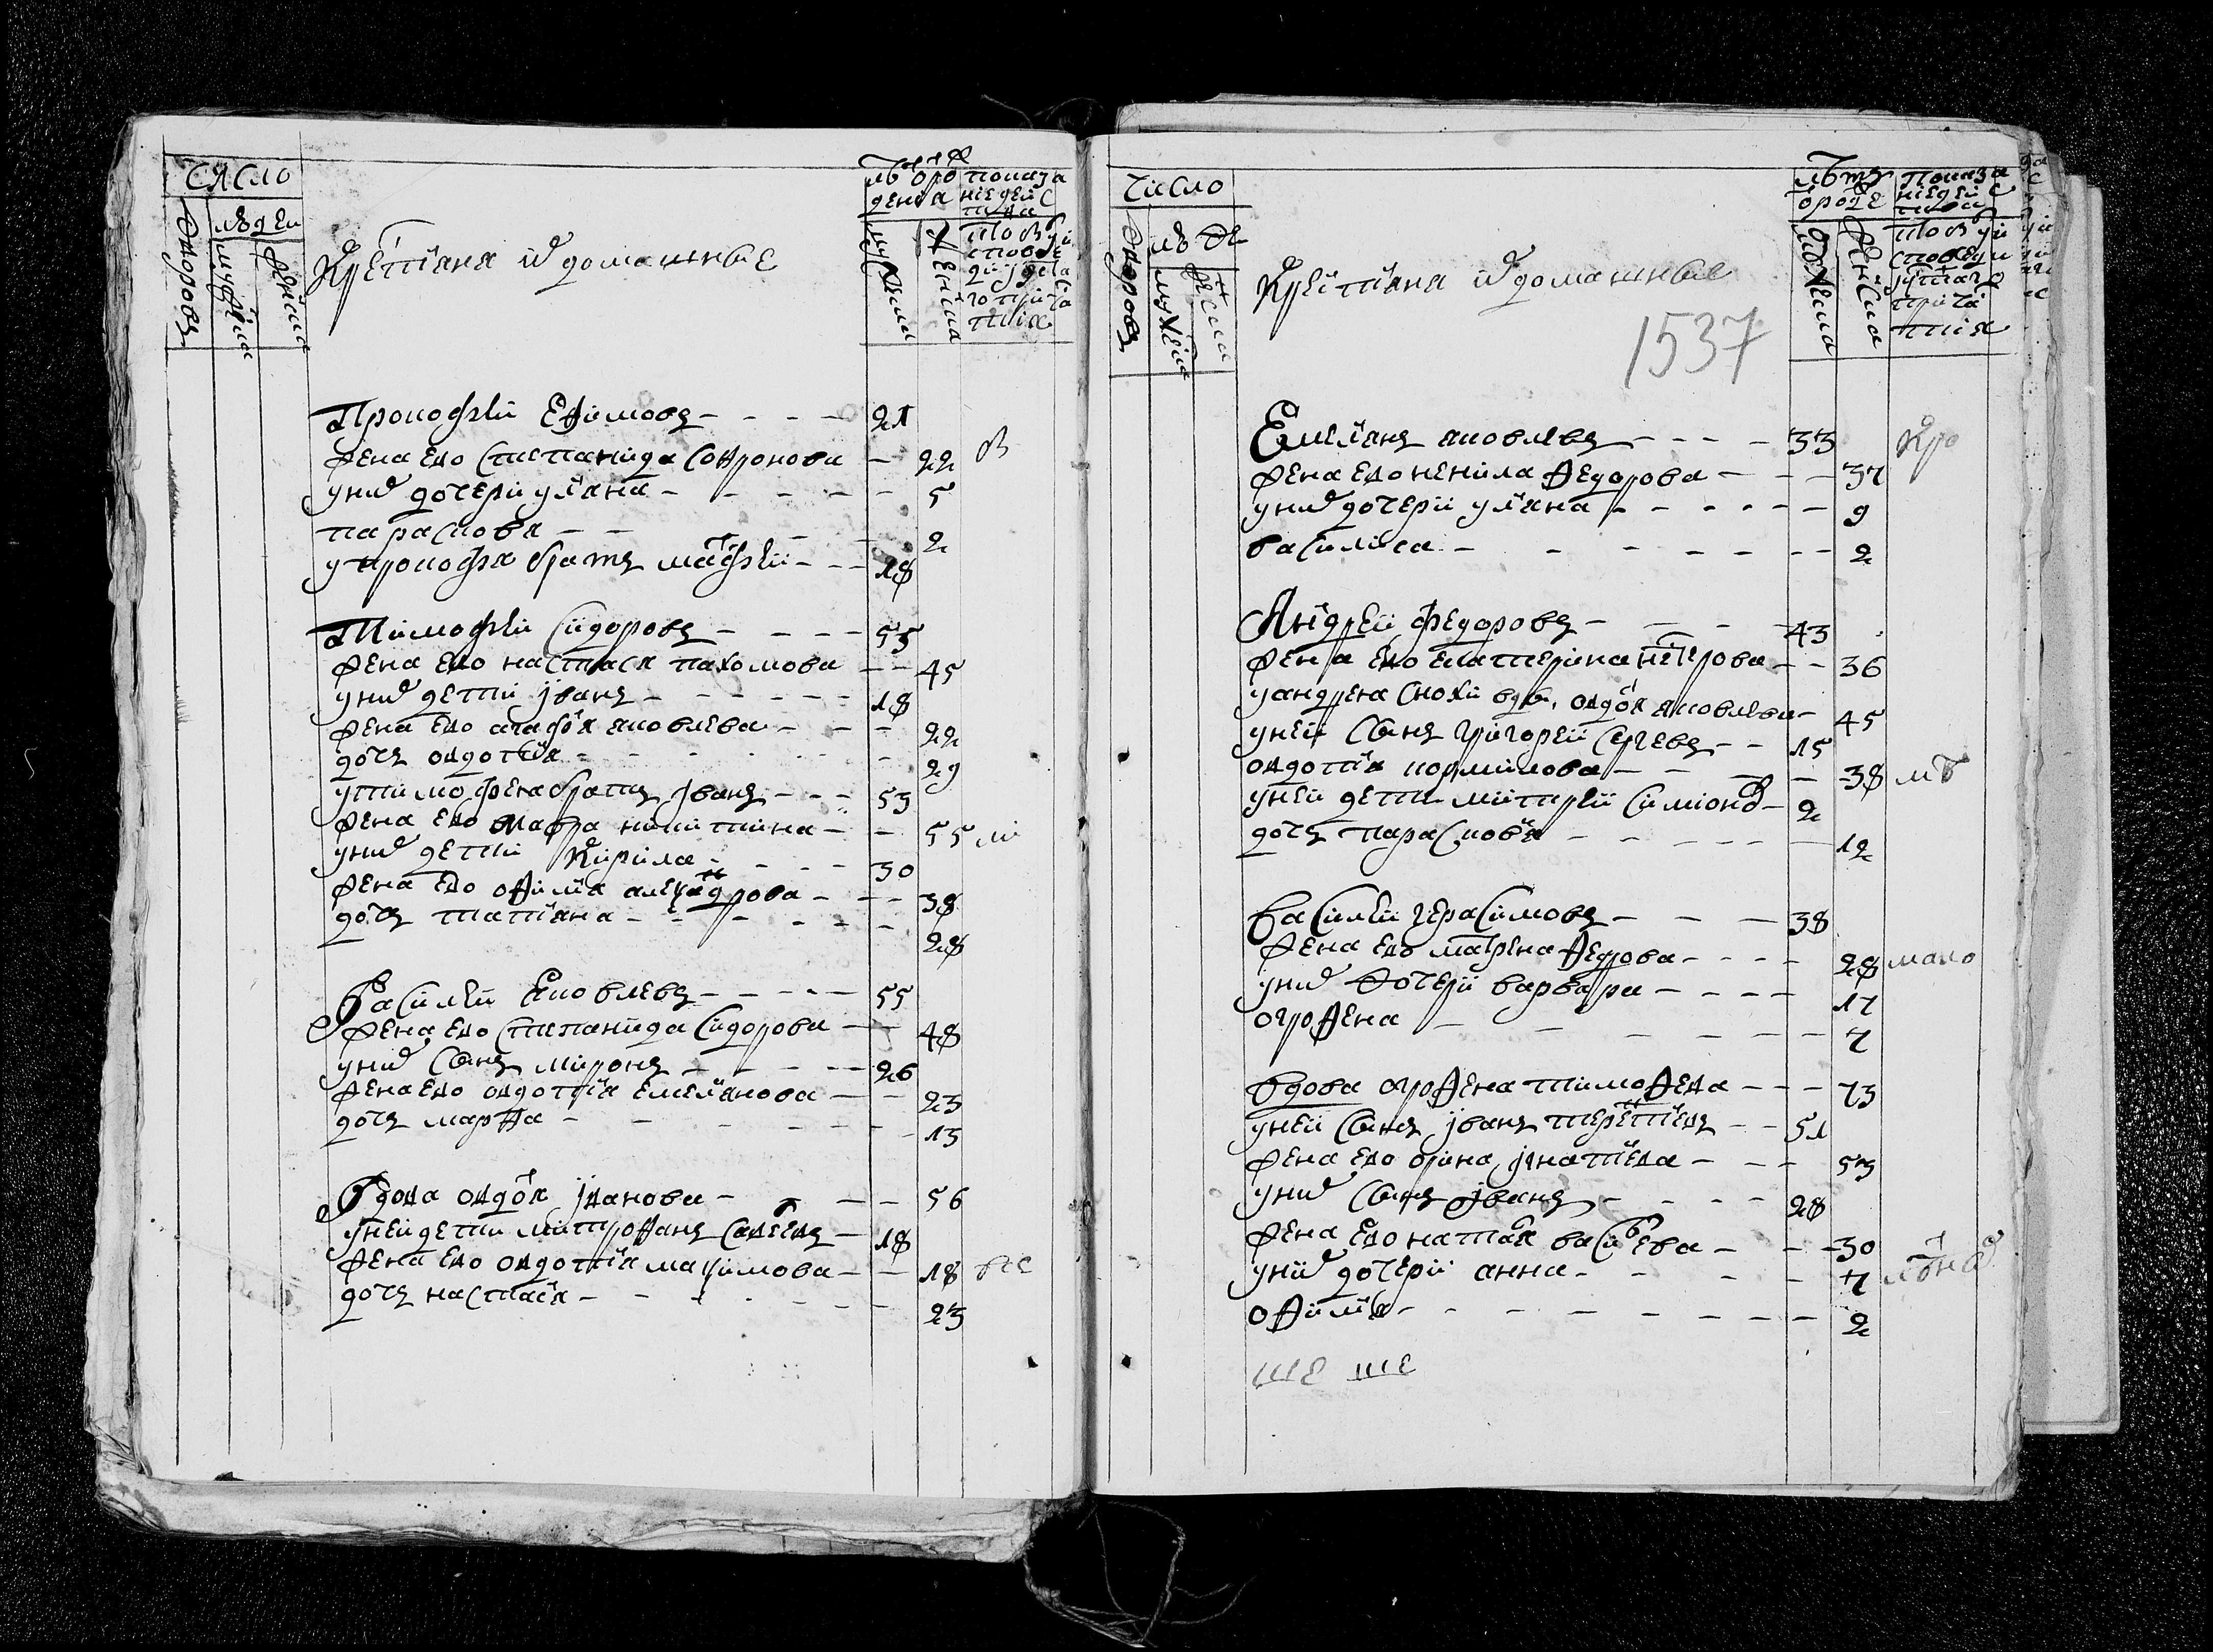 число
дворовъ
людеи
мужеска
женска
Крестьяня и домашные
лѣ о рож
дения
мужеска
женска
показа
ние деис
тва
кто былъ у и
споведи и святаго прича
стия
Прокофеи Ефимовъ - - - - 21
жена ево степанида софронова - 22
у них дочери уляна - - - - - 5
парасковя - - - - 2
у прокофя братъ матфеи - - - 18
Тимофеи сидоровъ - - - - 55
жена ево настася пахомова - - 45
у них дети иванъ - - - - - - 18
жена ево агафя яковлева - - - 22
дочь овдотия - - - - - 29
у тимофея братъ иванъ - - - 53
жена ево мавра никитина - - 55
у них дети кирила - - - - 30
жена ево офимия александрова - - - 38
дочь татияна - - - - - - 28
Василеи яковлевъ - - - - - 55
жена ево степанида сидорова - - 48
у них сынъ миронъ - - - - - 26
жена ево овдотия емелянова - - 23
дочь марфа - - - - - - - 13
Вдова овдотя иванова - - - - 56
у неи дети митрофанъ савеевъ - 18
жена ево овдотия максимова - - 18
дочь настася - - - - - - - 23
число
дворовъ
лю де
мужеска
женска
Крестьяня и домашные
1537
лѣтъ
о рожде
мужеска
женска
показа
ние деис
тва
кто былъ у и
споведи
и святаго
прича
стия
Емелянъ яковлевъ - - - - 33
жена ево ненила федорова - - - 37
у них дочери уляна - - - - - - 9
василиса - - - - - - - 2
Андреи федоровъ - - - - 43
жена ево екатерина петрова - - 36
у андрея снохи вдв. овдотя яковлева - 45
у неи сынъ григореи сергевъ - - 15
овдотия кормилова - - - - - 38
у неи дети митреи симионов - 2
дочь парасковья - - - - - - 12
василеи герасимовъ - - - 38
жена ево матрена федорова - - - - 28
у них дочери варвара - - - - 17
огрофена - - - - - - 7
вдова огрофена тимофева - - - 73
у неи сынъ иванъ терентиевъ - - 51
жена ево орина игнатиева - - - 53
у них сынъ иванъ - - - - 28
жена ево наталя васильева - - - 30
у них дочери анна - - - - - 7
офимия - - - - - - - - 2